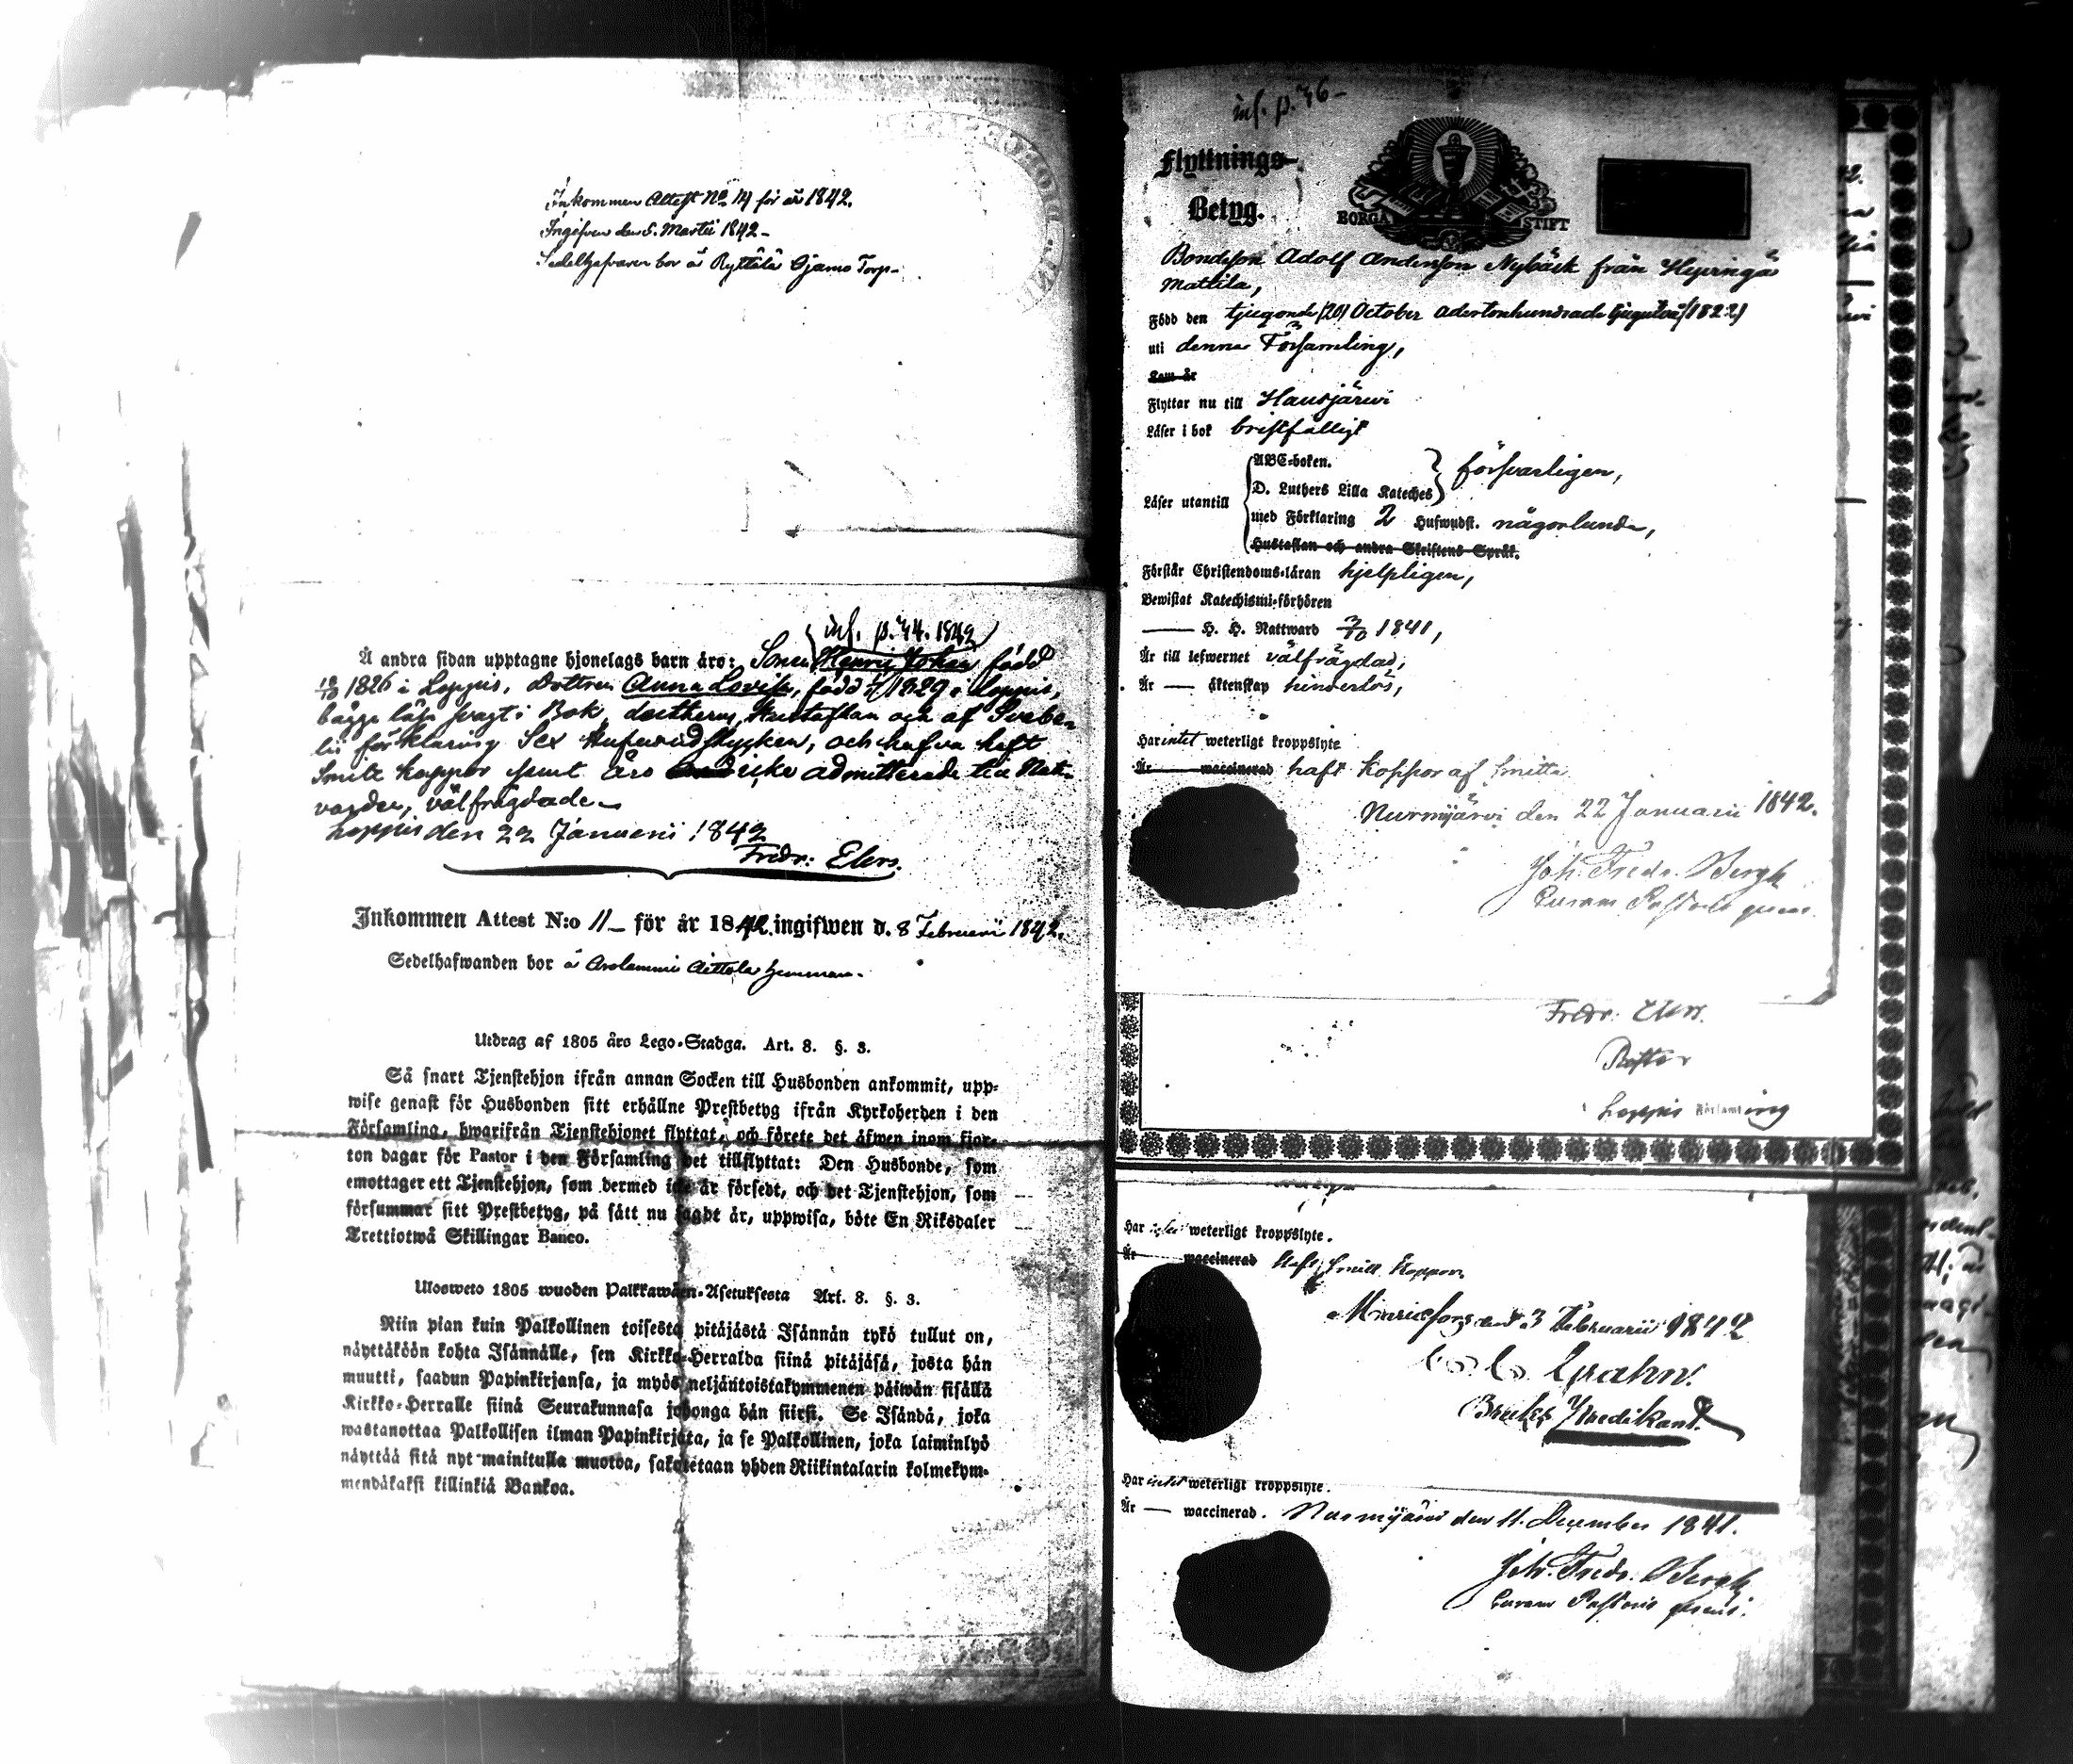 Inkommen Attest No 14 för år 1842.
Ingifven den 5. Martii 1842 –
Sedelhafvaren bor å Ryttälä Ojamo Torp –
inf. p. 44. 1842
Å andra sidan upptagne hjonelags barn äro: Sonen Henric Johan född
1826 i Loppis, Dottren Anna Lovisa, född 1829 i Loppis,
bägge läsa svagt i Bok, Lutherus, Hustaflan och af Svebe-
lii förklaring Sex Hufvudstycken, och hafva haft
Smitt koppor samt äro icke admitterade till Natt-
varden, välfrägdade –
Loppis den 22 Januarii 1842
Fredr: Elers.
Inkommen Attest N:o 11 – för år 1842. ingifwen d. 8 Februarii 1842.
Sedelhafwanden bor å Arolammi Aittola hemman –
Utdrag af 1805 års Lego-Stadga. Art. 8. §. 3.
Så snart Tjenstehjon ifrån annan Socken till Husbonden ankommit, upp-
wise genast för Husbonden sitt erhållne Prestbetyg ifrån Kyrkoherden i den
Församling, hwarifrån Tjenstehjonet flyttat, och förete det äfwen inom fjor-
ton dagar för Pastor i den Församling det tillflyttat: Den Husbonde, som
emottager ett Tjenstehjon, som dermed icke är försedt, och det Tjenstehjon, som
försummar sitt Prestbetyg, på sätt nu sagdt är, uppwisa, böte En Riksdaler
Trettiotwå Skillingar Banco.
Ulosweto 1805 wuoden Palkkawäen-Asetuksesta Art. 8. §. 3.
Niin pian kuin Palkollinen toisesta pitäjästä Isännän tykö tullut on,
näyttäköön kohta Isännälle, sen Kirkko-Herralda siinä pitäjäsä, josta hän
muutti, saadun Papinkirjansa, ja myös neljäntoistakymmenen päiwän sisällä
Kirkko-Herralle siinä Seurakunnasa johonga hän siirsi. Se Isändä, joka
wastanottaa Palkollisen ilman Papinkirjata, ja se Palkollinen, joka laiminlyö
näyttää sitä nyt mainitulla muotoa, sakotetaan yhden Riikintalarin kolmekym-
mendäkaksi killinkiä Bankoa.
inf. p. 46 –
Flyttnings-
Betyg.
BORGÅ STIFT
Bondeson Adolf Anderson Nybäck från Hyvingä
Mattila,
Född den tjugonde (20) October adertonhundrade tjugutvå (1822)
uti denna Församling,
Kom år
Flyttar nu till Hausjärwi
Läser i bok bristfälligt
Läser utantill
ABC-boken.
D. Luthers Lilla Kateches försvarligen,
med Förklaring 2 Hufwudst. någorlunda,
Hustaflan och andra Skriftens Språk.
Förstår Christendoms-läran hjelpligen,
Bewistat Katechismi-förhören
— H. H. Nattward 3/10 1841,
Är till lefwernet välfrägdad,
Är — äktenskap hinderlös,
Har intet weterligt kroppslyte
Är — waccinerad haft Koppor af Smitta
Nurmijärvi den 22 Januarii 1842.
Joh. Fredr. Bergh
Curam Pastoris gerens
Fredr: Elers.
Pastor
Loppis Församling
Har intet weterligt kroppslyte.
Är — waccinerad Haft Smitt Koppor
Mariefors den 3 Februarii 1842
Grahn.
Bruks Predikant.
Har intet weterligt kroppslyte.
Är — waccinerad. Nurmijärvi den 11. December 1841.
Joh. Fredr. Bergh
Curam Pastoris gerens.